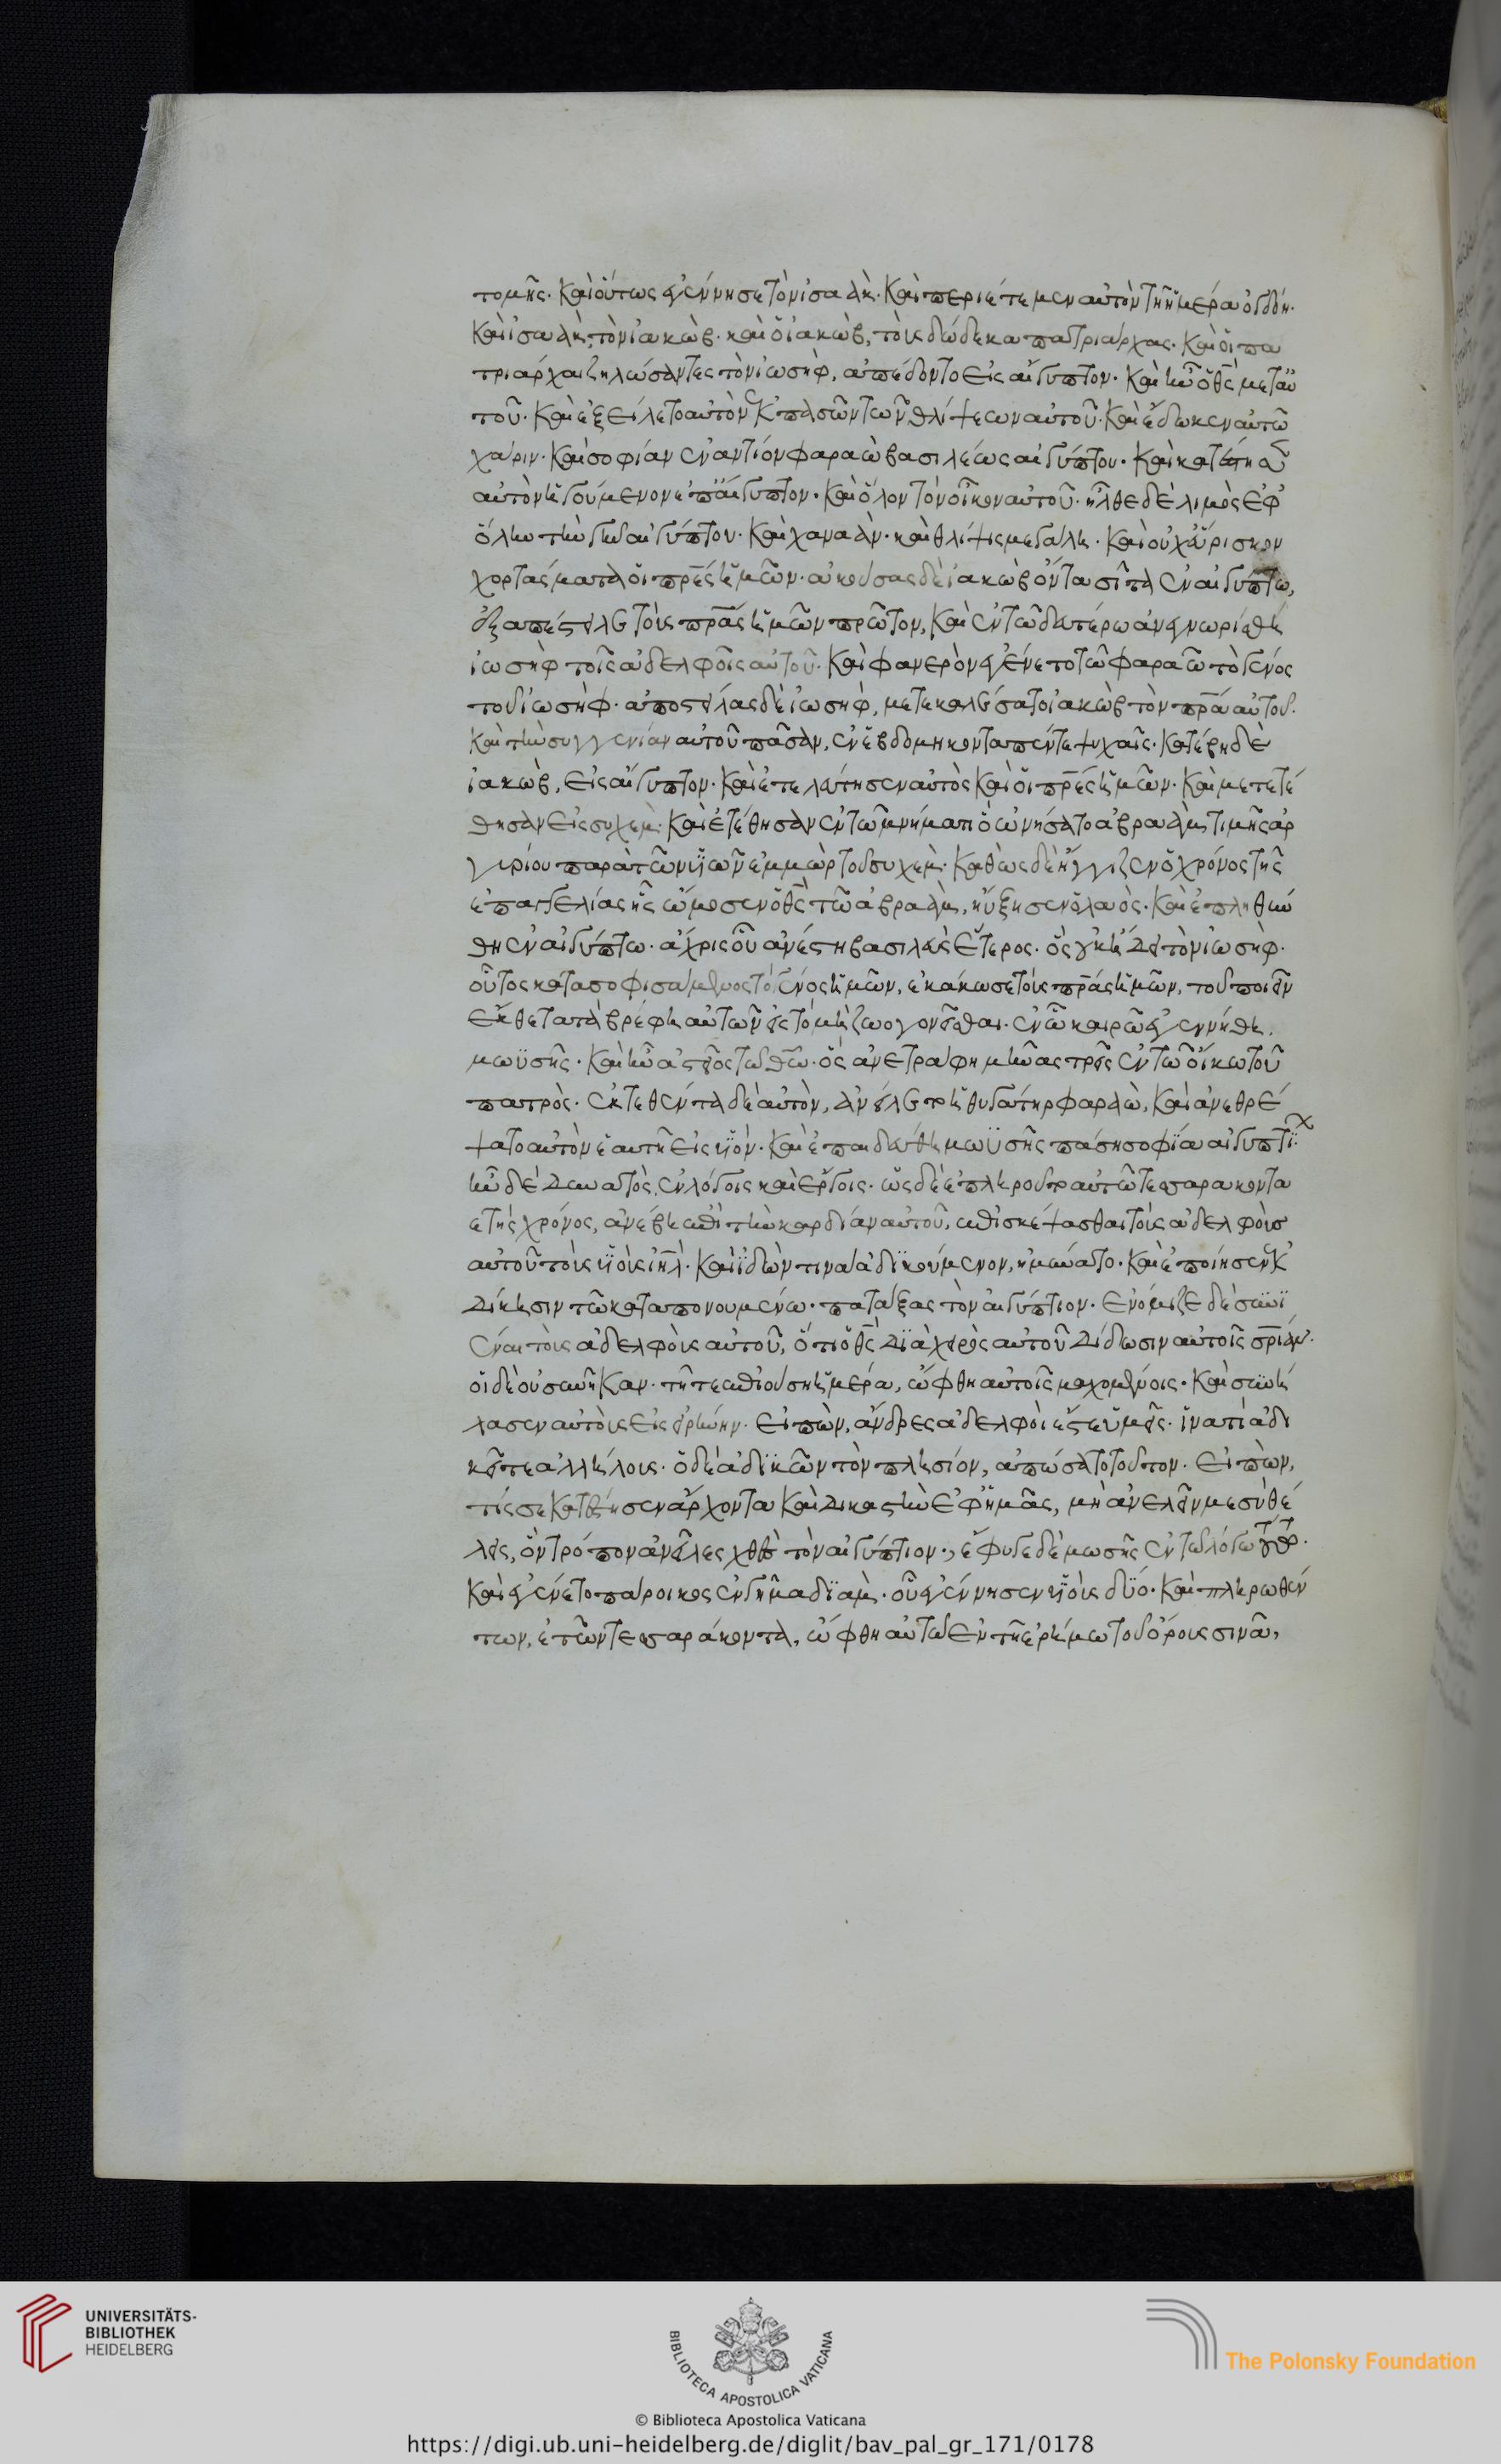 τομῆς· καὶ οὕτως ἐγέννησε τὸν ἰσαάκ· καὶ περιέτεμεν αὐτὸν τῆ ἡμέρα ὀγδόη·
καὶ ἰσαὰκ, τὸν ἰακώβ· καὶ ὁ ἰακώβ, τοὺς δώδεκα πατριάρχας· καὶ οἱ πα
τριάρχαι ζηλώσαντες τὸν ἰωσὴφ, ἀπέδοντο εἰς αἴγυπτον· καὶ ἦν ὁ θς μετ αὐ
τοῦ· καὶ ἐξείλετο αὐτὸν ἐκ πασῶν τῶν θλίψεων αὐτοῦ· καὶ ἔδωκεν αὐτῶ
χάριν· καὶ σοφίαν ἐναντίον φαραὼ βασιλέως αἰγύπτου· καὶ κατέστησεν
αὐτὸν ἡγούμενον ἐπ αἴγυπτον· καὶ ὅλον τὸν οἶκον αὐτοῦ· ἦλθε δὲ λιμὸς ἐφ
ὅλην τὴν γῆν αἰγύπτου· καὶ χαναὰν· καὶ θλίψις μεγάλη· καὶ οὐχ εὕρισκον
χορτάσματα οἱ πρες ἡμῶν· ἀκούσας δὲ ἰακὼβ ὄντα σῖτα ἐν αἰγύπτω,
ἐξαπέστειλε τοὺς πρας ἡμῶν πρῶτον, καὶ ἐν τῶ δευτέρω ἀνεγνωρίσθη
ἰωσὴφ τοῖς ἀδελφοῖς αὐτοῦ· καὶ φανερὸν ἐγένετο τῶ φαραὼ τὸ γένος
τοῦ ἰωσὴφ· ἀποστείλας δὲ ἰωσὴφ, μετεκαλέσατο ἰακὼβ τὸν πρα αὐτοῦ·
καὶ τὴν συγγενίαν αὐτοῦ πᾶσαν, ἐν ἑβδομήκοντα πέντε ψυχαῖς· κατέβη δὲ
ἰακὼβ, εἰς αἴγυπτον· καὶ ἐτελεύτησεν αὐτὸς καὶ οἱ πρες ἡμῶν· καὶ μετετέ
θησαν εἰς συχεμ· καὶ ἐτέθησαν ἐν τῶ μνήματι ὃ ὠνήσατο ἀβραὰμ τιμῆς ἀρ
γυρίου παρὰ τῶν υἱῶν ἐμμὼρ τοῦ συχεμ· καθὼς δὲ ἤγγιζεν ὁ χρόνος τῆς
ἐπαγγελίας ἧς ὤμοσεν ὁ θς τῶ ἀβραὰμ, ηὔξησεν ὁ λαὸς· καὶ ἐπληθύν
θη ἐν αἰγύπτω· ἄχρις οὗ ἀνέστη βασιλεὺς ἕτερος· ὃς οὐκ ἤδει τὸν ἰωσὴφ·
οὗτος κατασοφισάμενος τὸ γένος ἡμῶν, ἐκάκωσε τοὺς πρας ἡμῶν, τοῦ ποιεῖν
ἔκθετα τὰ βρέφη αὐτῶν εἰς τὸ μὴ ζωογονεῖσθαι· ἐν ὧ καιρῶ ἐγεννήθη.
μωϋσῆς· καὶ ἦν ἀστεῖος τῶ θῶ· ὃς ἀνετράφη μῆνας τρεῖς ἐν τῶ οἴκω τοῦ
πατρὸς· ἐκτεθέντα δὲ αὐτὸν, ἀνείλετο ἡ θυγάτηρ φαραὼ, καὶ ἀνεθρέ
ψατο αὐτὸν ἑαυτῆ εἰς υἱόν· καὶ ἐπαιδεύθη μωϋσῆς πάση σοφία αἰγυπτίων·
ἦν δὲ δυνατὸς, ἐν λόγοις καὶ ἔργοις· ὡς δὲ ἐπληροῦτο αὐτῶ τεσσαρακοντα
ετὴς χρόνος, ἀνέβη ἐπὶ τὴν καρδίαν αὐτοῦ, ἐπισκέψασθαι τοὺς ἀδελφοὺς
αὐτοῦ τοὺς υἱοὺς ιηλ· καὶ ἰδών τινα ἀδικούμενον, ἠμύνατο· καὶ ἐποίησεν ἐκ
δίκησιν τῶ καταπονουμένω· πατάξας τὸν αἰγύπτιον· ἐνόμιζε δὲ συνϊ
έναι τοὺς ἀδελφοὺς αὐτοῦ, ὅτι ὁ θς διὰ χειρὸς αὐτοῦ δίδωσιν αὐτοῖς σριαν·
οἱ δὲ οὐ συνῆκαν· τῆ τε ἐπιούση ἡμέρα, ὤφθη αὐτοῖς μαχομένοις· καὶ συνή
λασεν αὐτοὺς εἰς εἰρήνην· εἰπὼν, ἄνδρες ἀδελφοί ἐστε ὑμεῖς· ἱνατί ἀδι
κεῖτε ἀλλήλους· ὁ δὲ ἀδικῶν τὸν πλησίον, ἀπώσατο τοῦτον· εἰπὼν,
τίς σε κατέστησεν ἄρχοντα καὶ δικαστὴν ἐφ ἡμᾶς, μὴ ἀνελεῖν με σὺ θέ
λεις, ὃν τρόπον ἀνεῖλες χθὲς τὸν αἰγύπτιον·, ἔφυγε δὲ μωσῆς ἐν τῶ λόγω τούτω·
καὶ ἐγένετο πάροικος ἐν γῆ μαδϊαμ· οὗ ἐγέννησεν υἱοὺς δύο· καὶ πληρωθέν
των, ἐτῶν τεσσαράκοντα, ὤφθη αὐτῶ ἐν τῆ ἐρήμω τοῦ ὄρους σινᾶ,
UNIVERSITÄTS-
BIBLIOTHEK
HEIDELBERG
BIBLIOTECA APOSTOLICA VATICANA
The Polonsky Foundation
© Biblioteca Apostolica Vaticana
https://digi.ub.uni-heidelberg.de/diglit/bav_pal_gr_171/0178